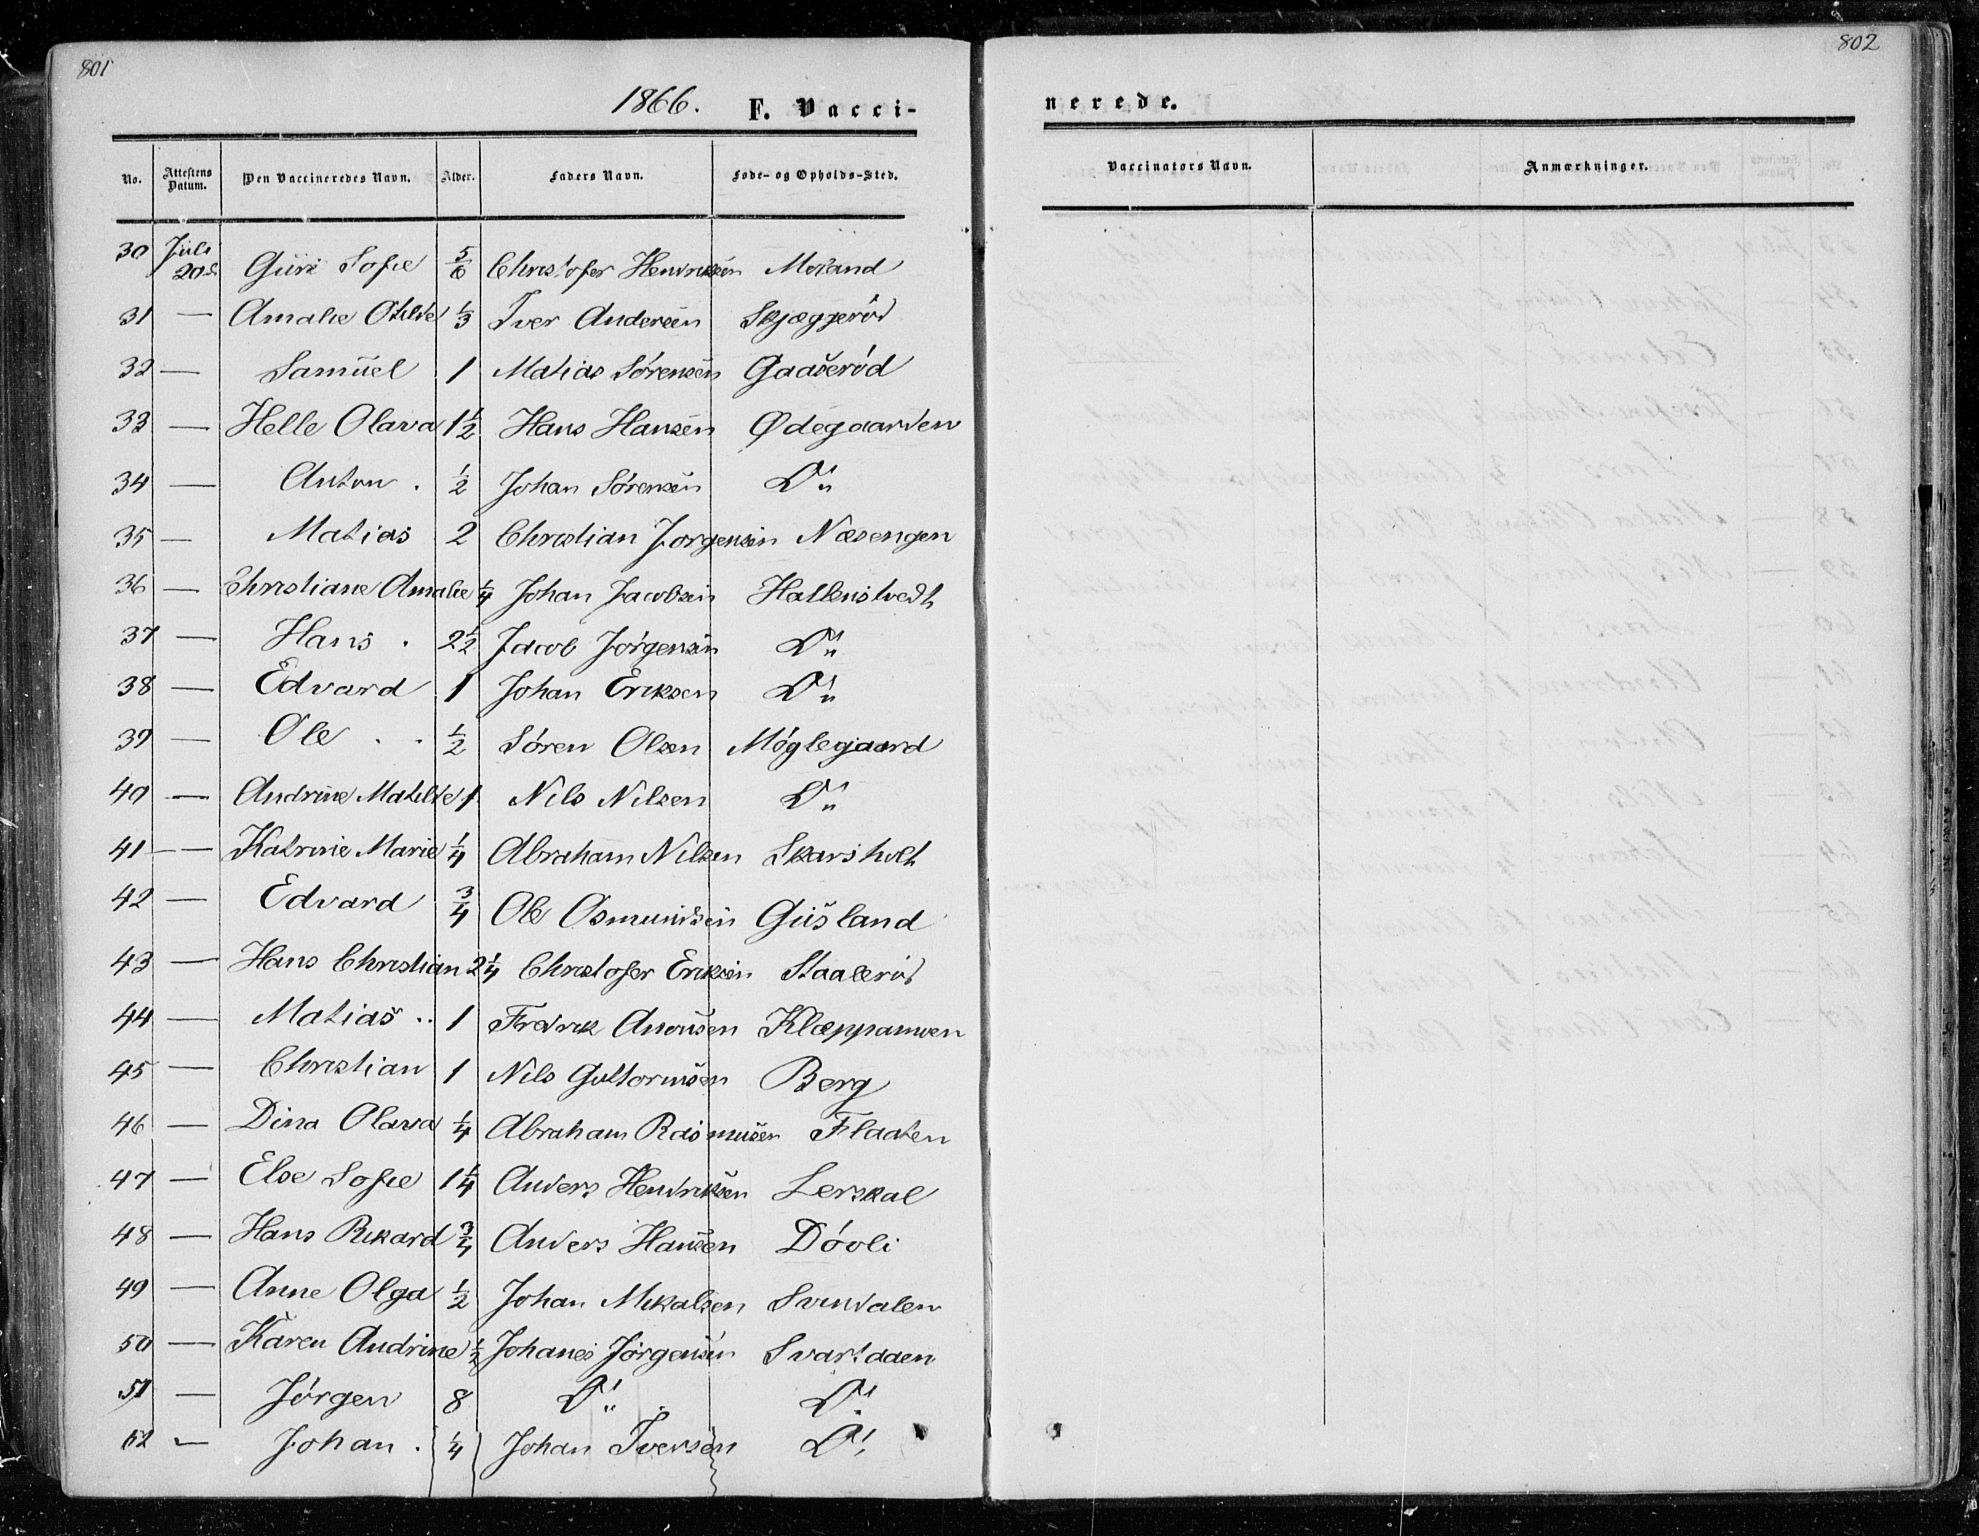 801
802
1866. F. Vacci-
nerede.
No. Attestens Datum. Den Vaccineredes Navn. Alder. Faders Navn. Føde- og Opholds-Sted. Vaccinators Navn. Anmærkninger.
30 Juli 20de Guri Sofie 5/6 Christofer Henriksen Moland
31 — Amalie Otilde 1/3 Iver Andersen Skjæggerød
32 — Samuel 1 Matias Sørensen Gaaserød
33 — Helle Olava 1 1/2 Hans Hansen Ødegaarden
34 — Anton . 1/2 Johan Sørensen Do
35 — Matias 2 Christian Jørgensen Næsengen
36 — Christiane Amalie 1/4 Johan Jacobsen Hallenstvedt
37 — Hans . 2 1/2 Jacob Jørgensen Do
38 — Edvard 1 Johan Eriksen Do
39 — Ole . . 1/2 Søren Olsen Møglegaard
40 — Andrine Matilde 1 Nils Nilsen Do
41 — Katrine Marie 1/4 Abraham Nilsen Skarsholt
42 — Edvard 3/4 Ole Osmundsen Gusland
43 — Hans Christian 2 1/4 Christofer Eriksen Staalerød
44 — Matias .. 1 Fredrik
45 — Christian 1 Nils Guttormsen Berg
46 — Dina Olava 1/4 Abraham Rasmusen Flaaten
47 — Else Sofie 1 1/4 Anders Henriksen Lerskal
48 — Hans Rikard 3/4 Anders Hansen Døvli
49 — Anne Olga 1/2 Johan Mikalsen Svindalen
50 — Karen Andrine 1/2 Johanes Jørgensen Svartdaen
51 — Jørgen 8 Do Do
52 — Johan . 1/4 Johan Iversen Do